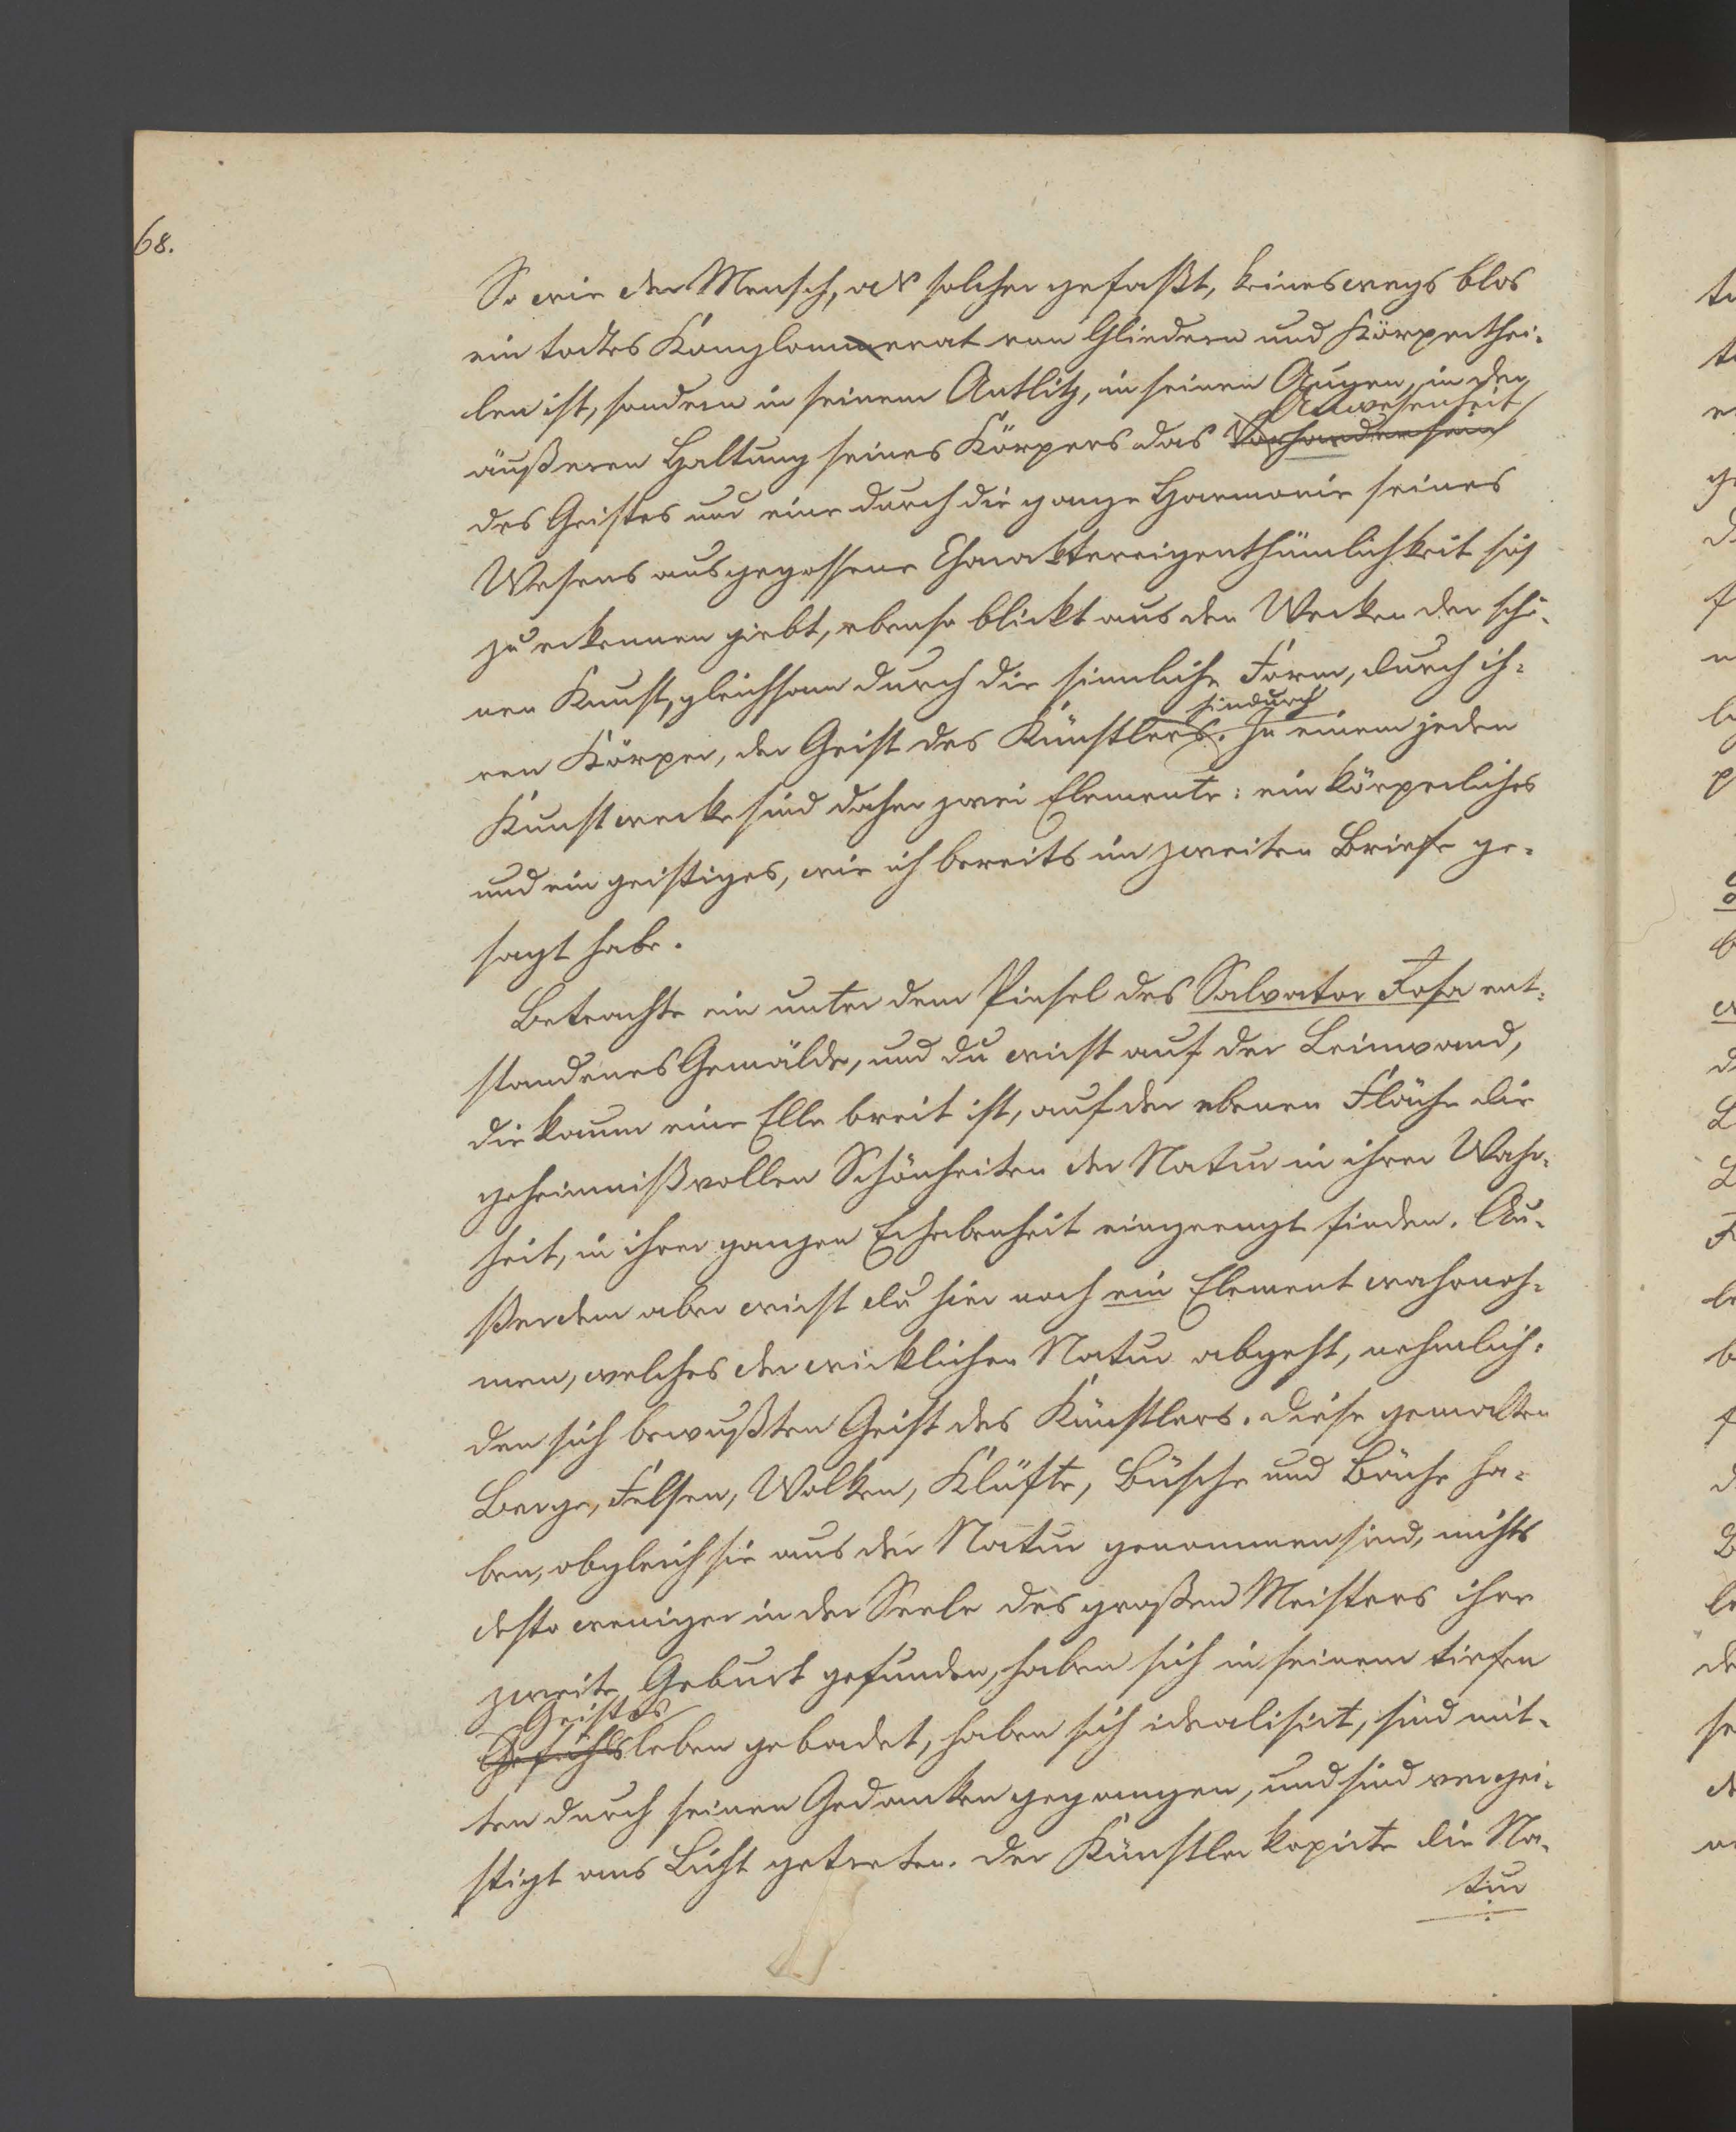 68.
So wie der Mensch, als solcher gefaßt, keineswegs blos
ein todtes Konglommerat von Gliedern und Körperthei-
len ist, sondern in seinem Antlitz, in seinen Augen, in der
Anwesenheit
äußeren Haltung seines Körpers das Vorhandensein
des Geistes und eine durch die ganze Harmonie seines
Wesens ausgegossene Charaktereigenthümlichkeit sich
zu erkennen giebt, ebenso blickt aus den Werken der schö-
nen Kunst, gleichsam durch die sinnliche Form, durch ih-
hindurch
ren Körper, der Geist des Künstlers. In einem jeden
Kunstwerke sind daher zwei Elemente: ein körperliches
und ein geistiges, wie ich bereits im zweiten Briefe ge-
sagt habe.
Betrachte ein unter dem Pinsel des Salvator Rosa ent-
standenes Gemälde, und du wirst auf der Leinwand,
die kaum eine Elle breit ist, auf der ebenen Fläche die
geheimnißvollen Schönheiten der Natur in ihrer Wahr-
heit, in ihrer ganzen Erhabenheit eingeengt finden. Au-
ßerdem aber wirst du hier noch ein Element wahrneh-
men, welches der wirklichen Natur abgeht, nehmlich:
den sich bewußten Geist des Künstlers. Diese gemalten
Berge, Felsen, Wolken, Klüfte, Büsche und Bäche ha-
ben, obgleich sie aus der Natur genommen sind, nichts
desto weniger in der Seele des großen Meisters ihre
zweite Geburt gefunden, haben sich in seinem tiefen
Geistes
Gefühlsleben gebadet, haben sich idealisirt, sind mit-
ten durch seinen Gedanken gegangen, und sind vergei-
stigt ans Licht getreten. Der Künstler kopirte die Na-
tur